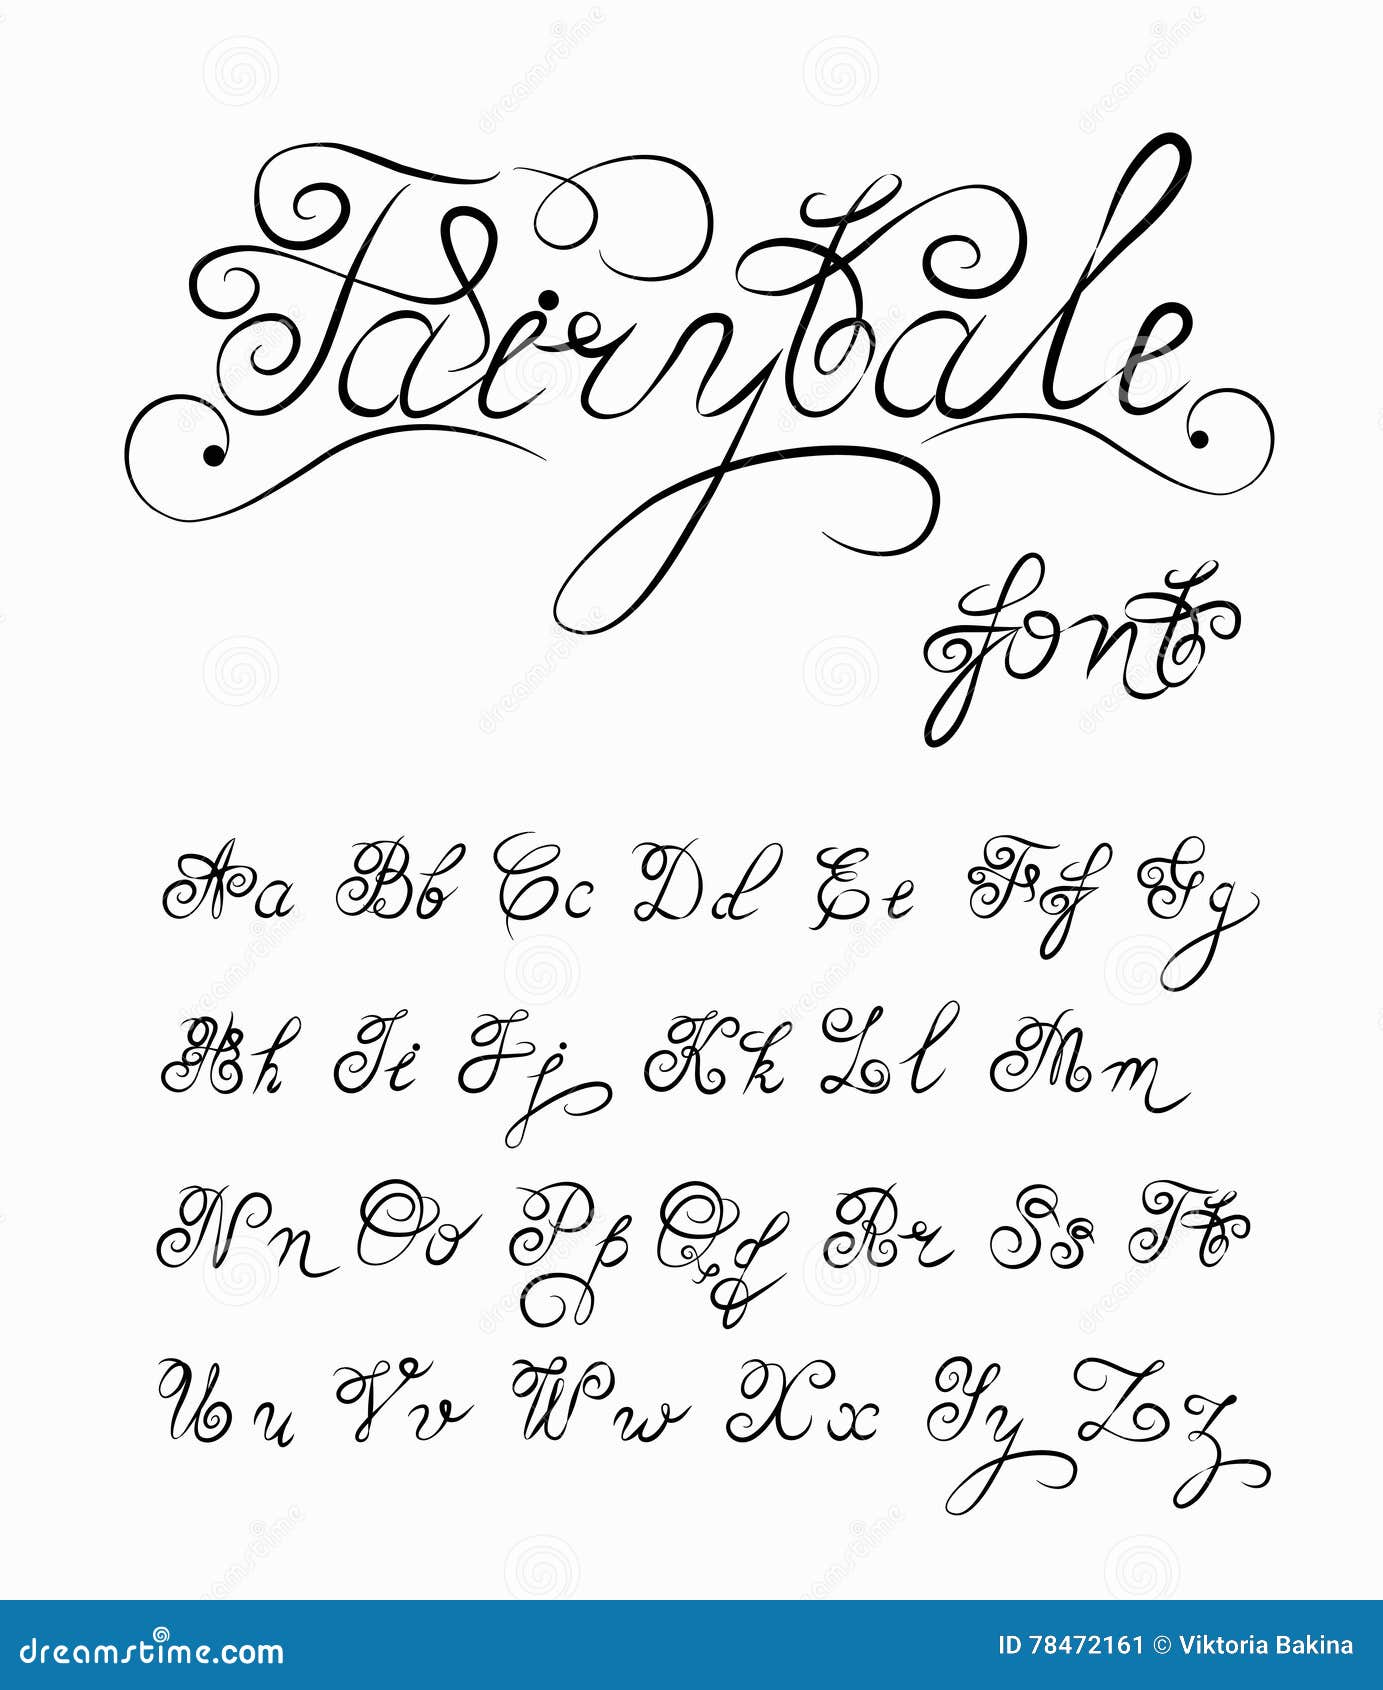 Fairytale
font
Aa Bb Cc Dd Ee Ff Gg
Hh Ii Jj Kk Ll Mm
Nn Oo Pp Qq Rr Ss Tt
Uu Vv Ww Xx Yy Zz
dreamstime.com
ID 78472161 © Viktoria Bakina